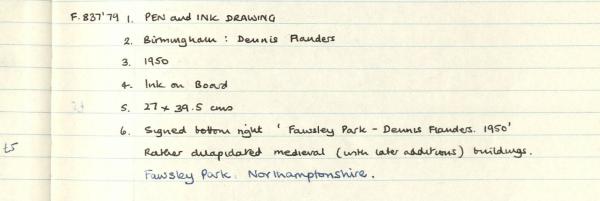 F.837'79 1. PEN and INK DRAWING
2. Birmingham : Dennis Flanders
3. 1950
4. Ink on Board
5. 27 x 39.5 cms
6. Signed bottom right 'Fawsley Park - Dennis Flanders. 1950'
Rather dilapidated medieval (with later additions) buildings.
Fawsley Park. Northamptonshire.